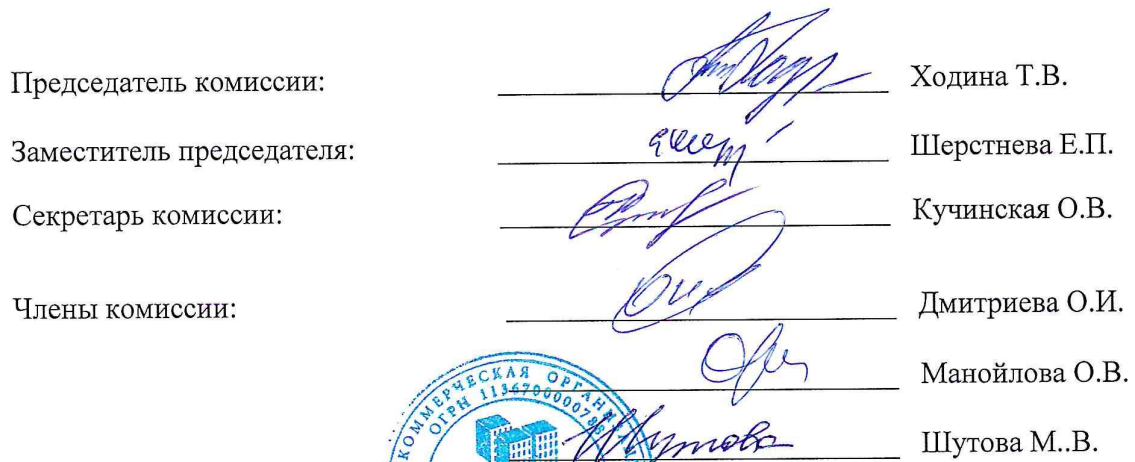 Председатель комиссии: Ходина Т.В.
Заместитель председателя: Шерстнева Е.П.
Секретарь комиссии: Кучинская О.В.
Члены комиссии: Дмитриева О.И.
Манойлова О.В.
КОММЕРЧЕСКАЯ
ОГРН
Шутова Шутова М..В.